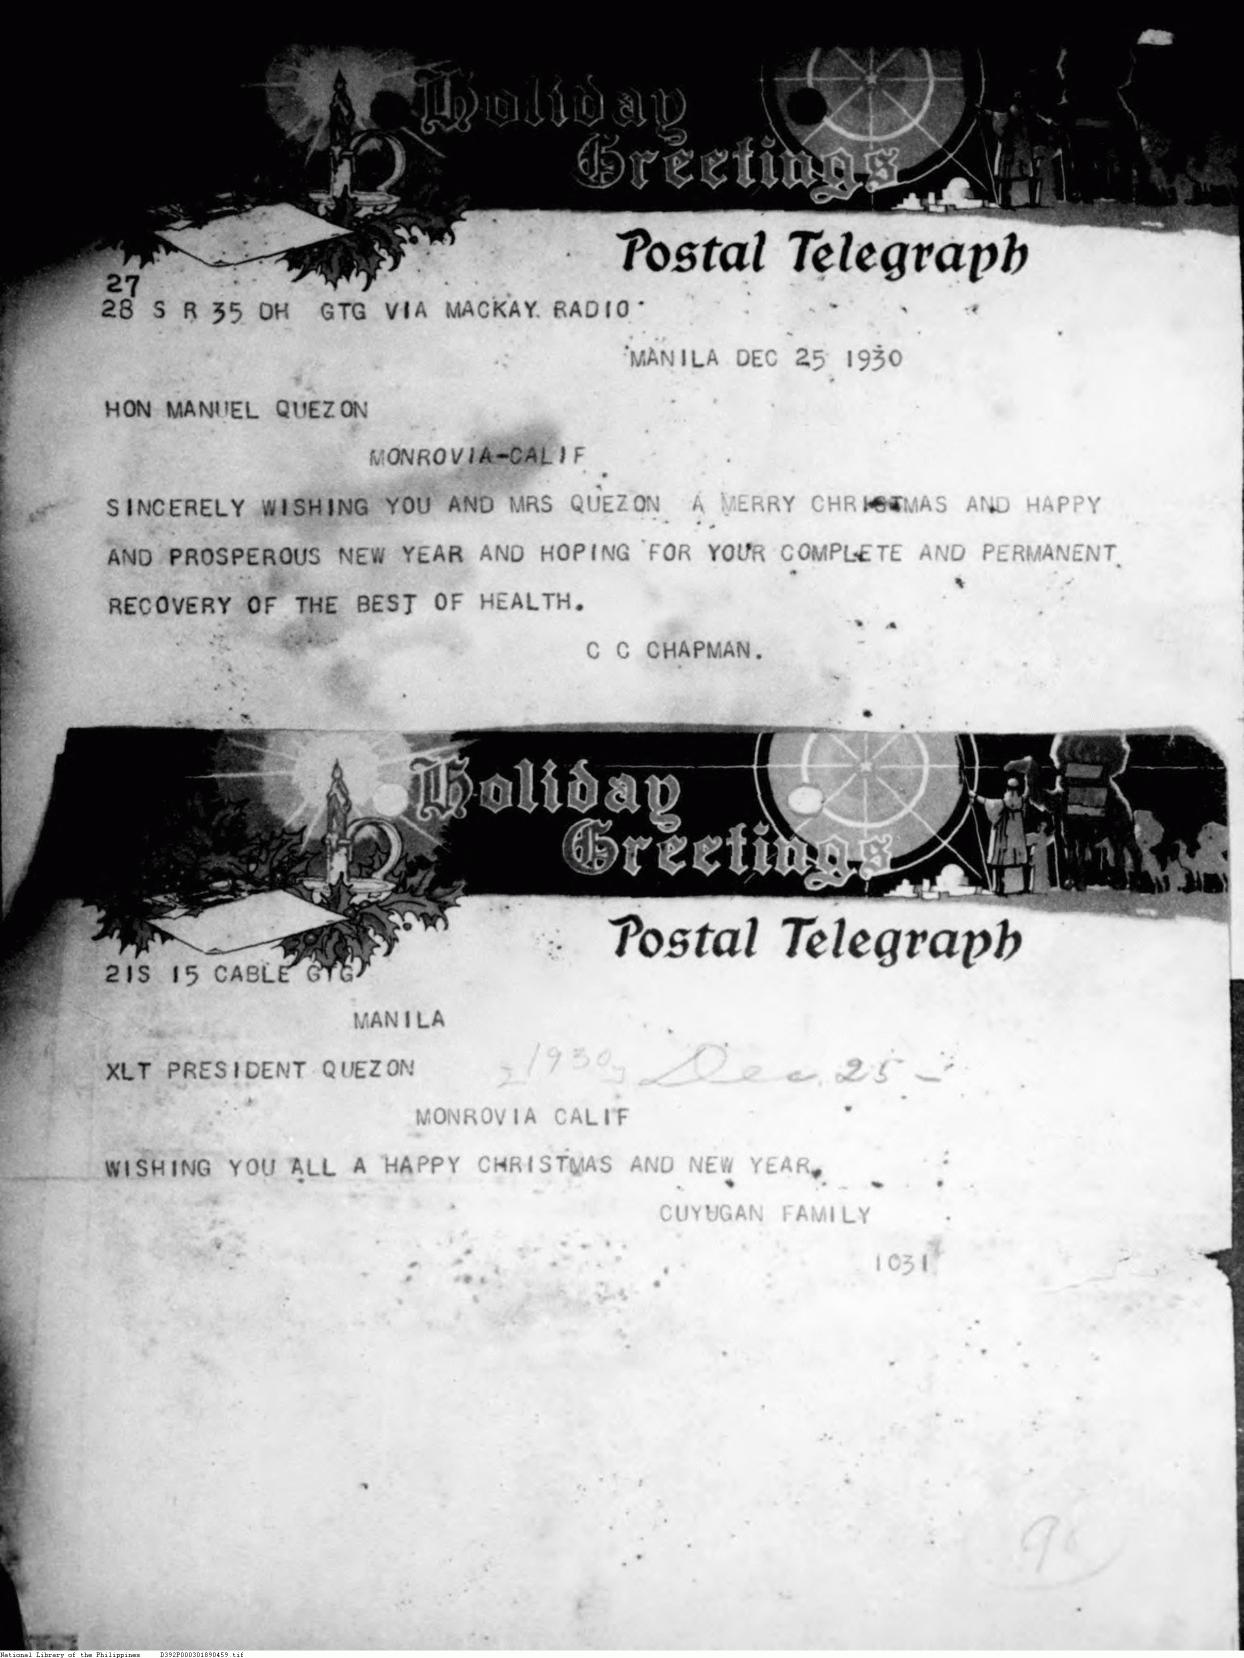 Holiday
Greetings
Postal Telegraph
27
28 S R 35 DH GTG VIA MACKAY. RADIO
MANILA DEC 25 1930
HON MANUEL QUEZON
MONROVIA-CALIF
SINCERELY WISHING YOU AND MRS QUEZON A MERRY CHRISTMAS AND HAPPY
AND PROSPEROUS NEW YEAR AND HOPING FOR YOUR COMPLETE AND PERMANENT
RECOVERY OF THE BEST OF HEALTH.
C C CHAPMAN.
Holiday
Greetings
Postal Telegraph
21S 15 CABLE GTG
MANILA
XLT PRESIDENT QUEZON 1930 Dec. 25 -
MONROVIA CALIF
WISHING YOU ALL A HAPPY CHRISTMAS AND NEW YEAR.
CUYUGAN FAMILY
1031
National Library of the Philippines D392P000301890459.tif